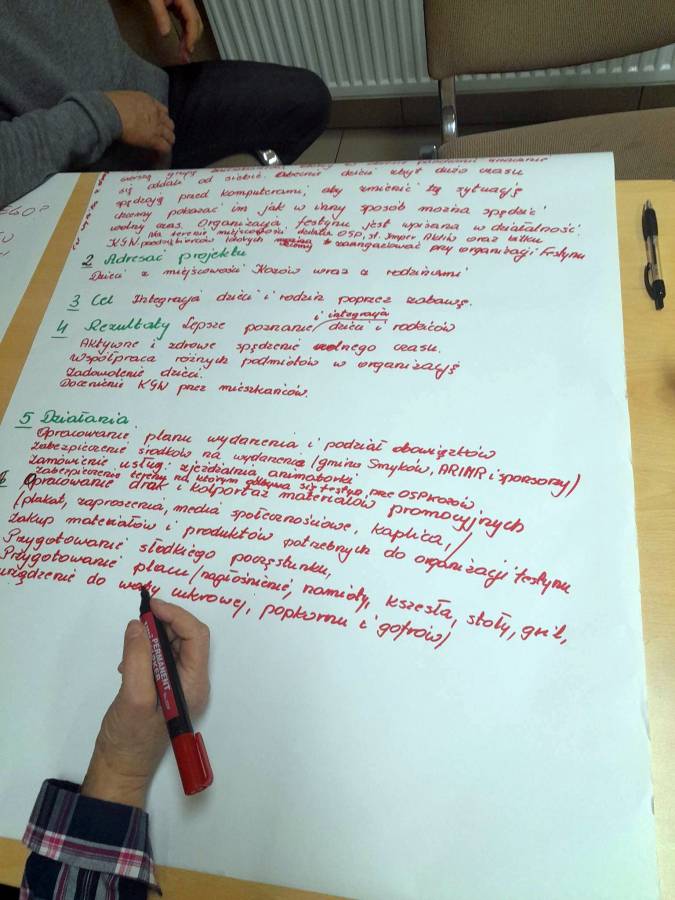 się oddali od siebie. Obecnie dzieci zbyt dużo czasu
spędzają przed komputerami, aby zmienić tę sytuację
chcemy pokazać im jak w inny sposób można spędzić
wolny czas. Organizacja festynu jest wpisana w działalność
KGW. Na terenie miejscowości działa OSP, st. Impr. Aktiv oraz kilku
przedsiębiorców których zaangażować przy organizacji Festynu
2 Adresaci projektu
Dzieci z miejscowości Kozów wraz z rodzinami
3 Cel Integracja dzieci i rodzin poprzez zabawę.
4 Rezultaty Lepsze poznanie / i integracja dzieci i rodziców
Aktywne i zdrowe spędzenie wolnego czasu.
Współpraca różnych podmiotów w organizację
Zadowolenie dzieci.
Docenienie KGW przez mieszkańców.
5 Działania
Opracowanie planu wydarzenia i podział obowiązków
Zabezpieczenie środków na wydarzenie (gmina Smyków, ARIMR i sponsorzy)
Zamówienie usług: zjeżdżalnia, animatorki
Zabezpieczenie terenu na którym odbywa się festyn prze OSP Kozów
Opracowanie druk i kolportaż materiałów promocyjnych
(plakat, zaproszenia, media społecznościowe, kaplica,)
Zakup materiałów i produktów potrzebnych do organizacji festynu
Przygotowanie słodkiego poczęstunku,
Przygotowanie placu (nagłośnienie, namioty, krzesła, stoły, gril,
urządzenie do waty cukrowej, popkornu i gofrów)
PERMANENT
MARKER